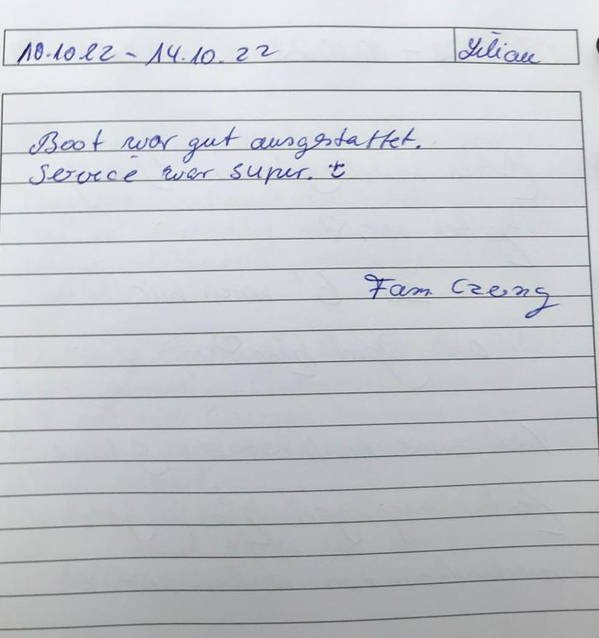 10.10.22 - 14.10.22
Lilian
Boot war gut ausgestattet.
Service war super.
Fam. Czerny